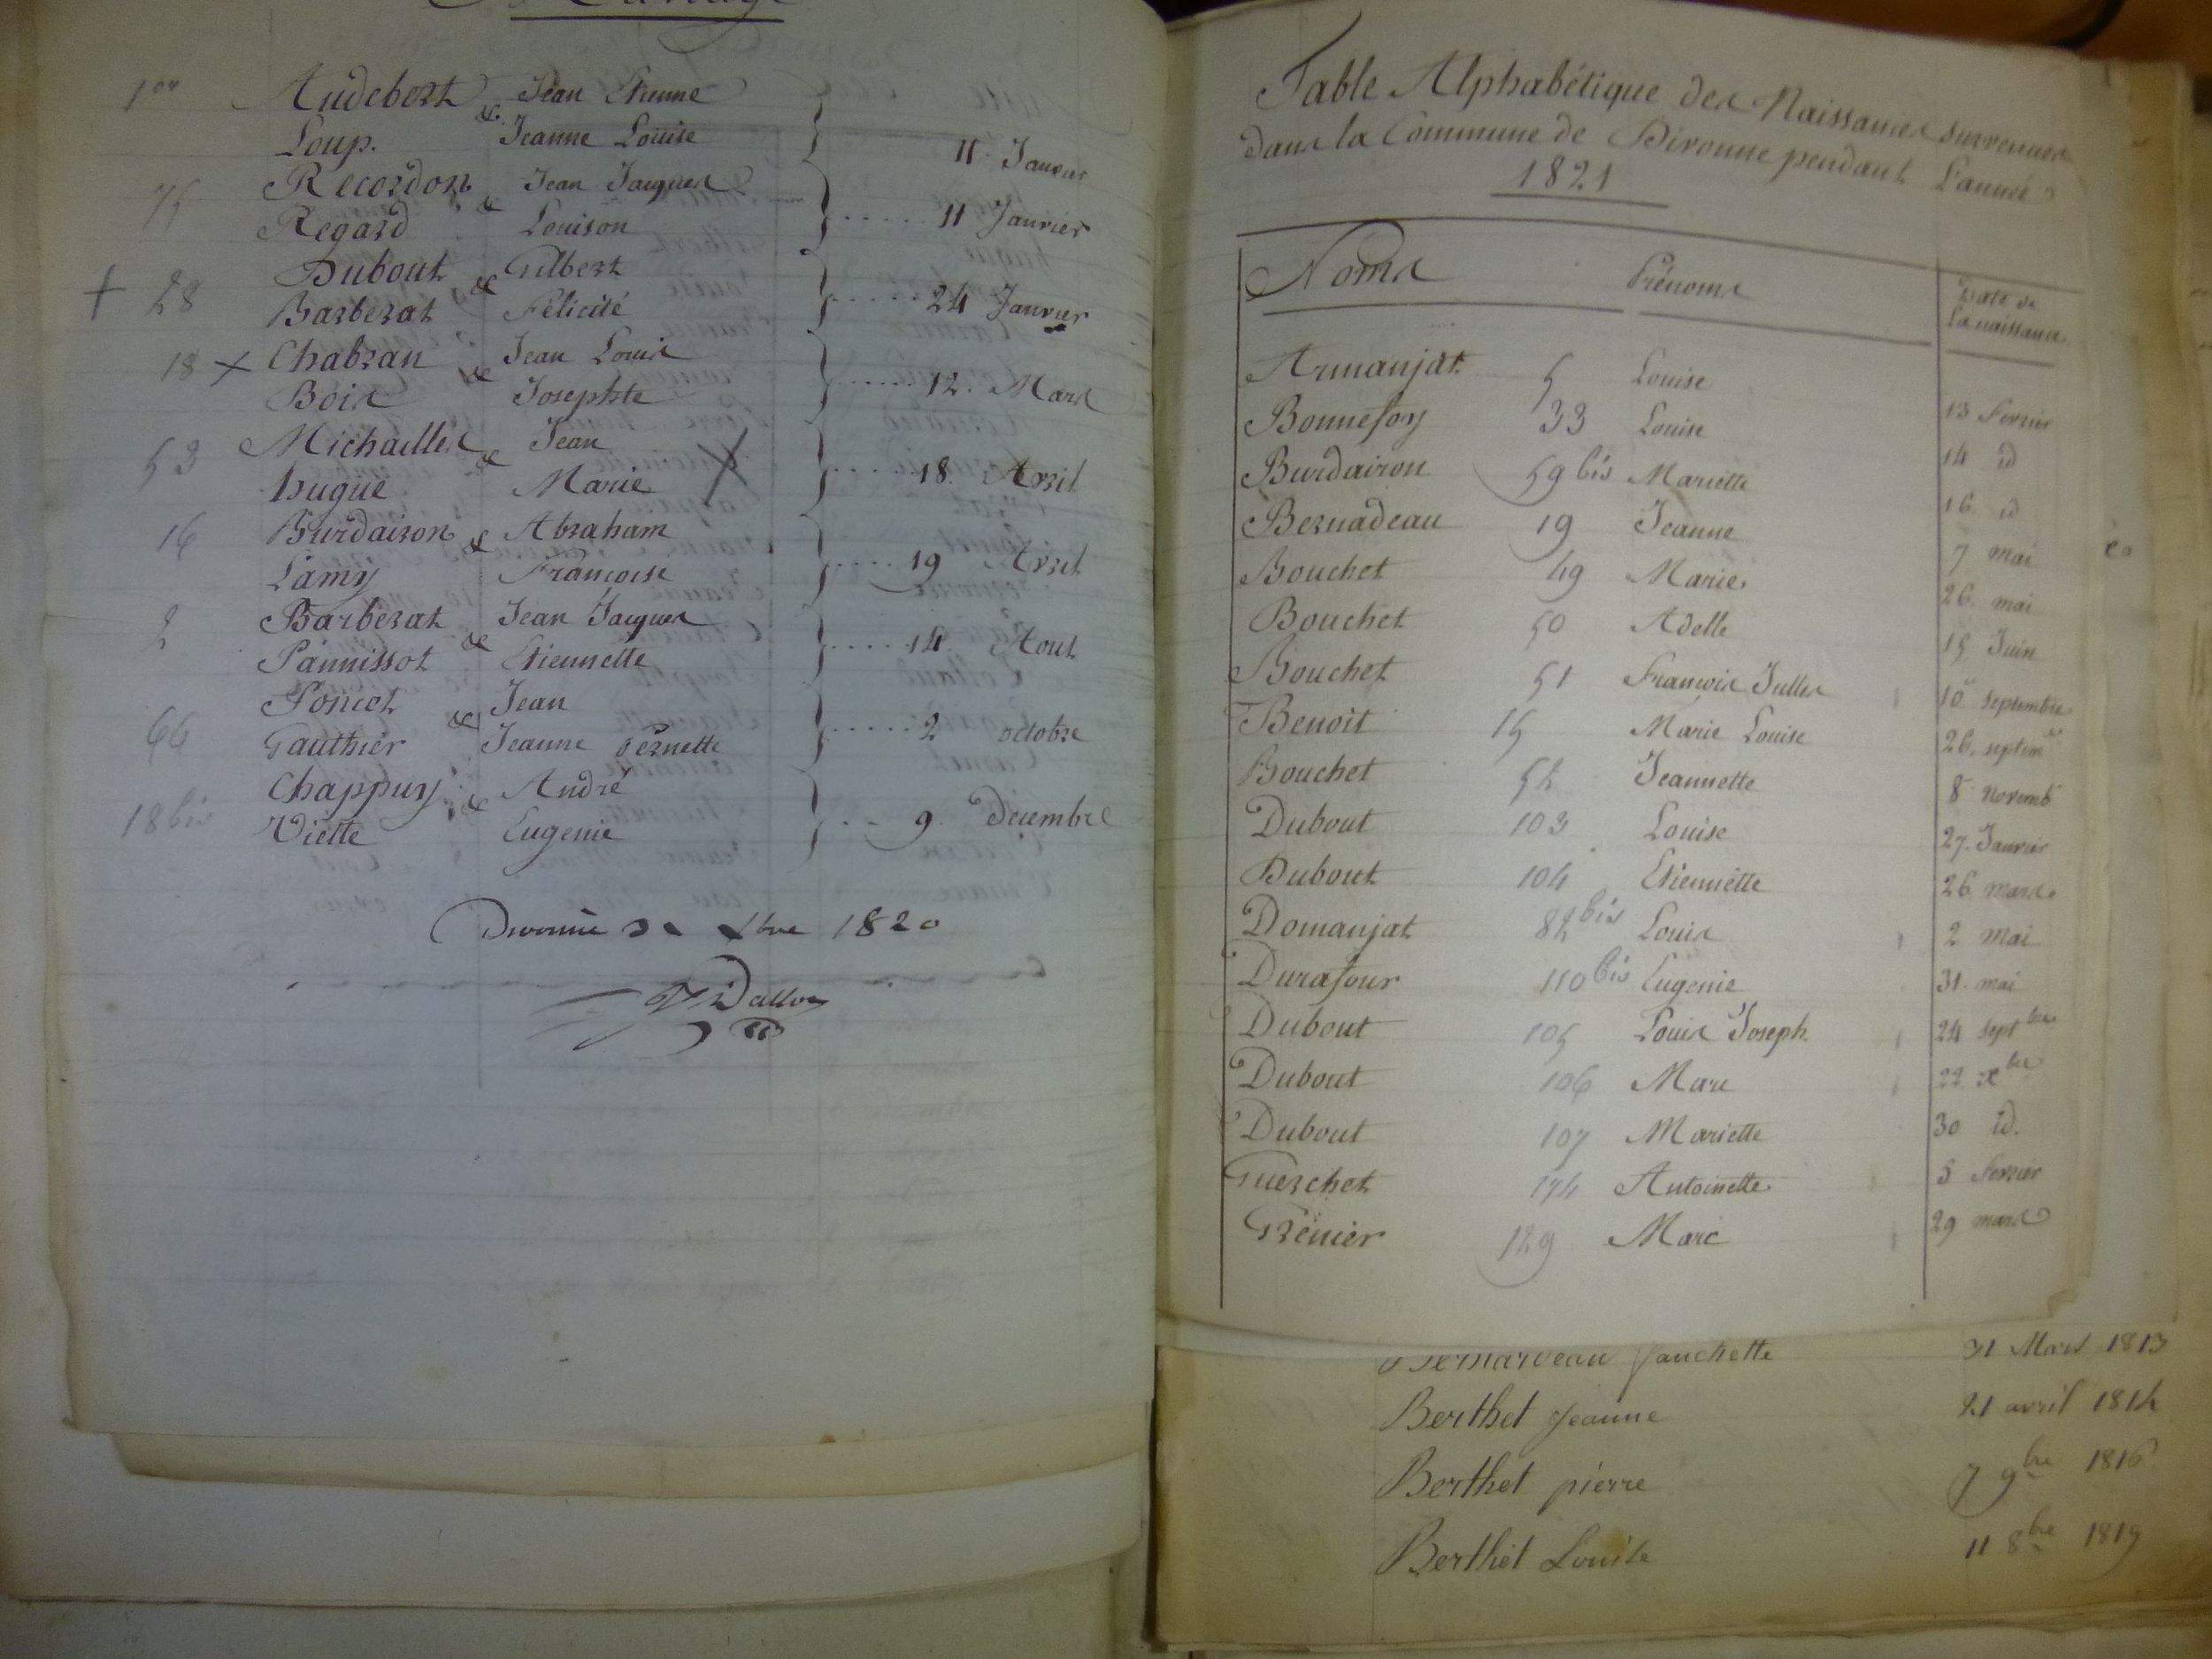 Mariage
1er Audebert & Jean Etienne
Loup. Jeanne Louise 11 Janvier
75 Recordon & Jean Jacques
Regard Louison 11 Janvier
+ 28 Dubout & Gilbert
Barberat Félicité 24 Janvier
18 x Chabran & Jean Louis
Bois Josephte 12. Mars
53 Michailles & Jean
hugue Marie 18. Avril
16 Burdairon & Abraham
Lamy Francoise 19 Avril
2 Barberat & Jean Jacques
Pannissot Etiennette 14 Aout
66 Poncet & Jean
Gauthier Jeanne Pernette 2 octobre
18 bis Chappuy & André
Viette Eugenie 9. Decembre
Divonne xbre 1820
Table Alphabétique des Naissances survenues
dans la Commune de Divonne pendant L'année
1821
Noms Prénoms Date de
La naissance
Armanjat 5 Louise 13 Fevrier
Bonnefoy 33 Louise 14 id
Burdairon 59 bis Mariette 16 id
Bernadeau 19 Jeanne 7 mai
Bouchet 49 Marie 26. mai
Bouchet 50 Adelle 15 Juin
Bouchet 51 Francois Julles 10 septembre
Benoit 15 Marie Louise 26. septem
Bouchet 52 Jeannette 8 novemb
Dubout 103 Louise 27. Janvier
Dubout 104 Etiennette 26 mars.
Domanjat 82 bis Louis 2 mai
Durafour 110 bis Eugenie 31. mai
Dubout 105 Louis Joseph. 24 sept bre
Dubout 106 Marc 22 xbre
Dubout 107 Mariette 30 id.
Guerchet 174 Antoinette 5 Fevrier
Grenier 129 Marc 29 mars
Bernardeau fanchette 31 Mars 1813
Berthet Jeanne 21 avril 1814
Berthet pierre 7 9bre 1816
Berthet Louise 11 8bre 1819